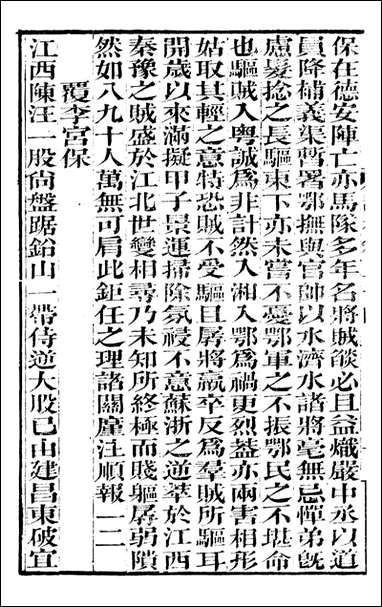 保在德安陣亡亦馬隊多年名將賊燄必且益熾嚴中丞以道
員降補義渠暫署鄂撫與官帥以水濟水諸將毫無忌憚弟旣
慮髮捻之長驅東下亦未嘗不憂鄂軍之不振鄂民之不堪命
也驅賊入粤誠爲非計然入湘入鄂爲禍更烈葢亦兩害相形
姑取其輕之意特恐賊不受驅且孱將羸卒反爲羣賊所驅耳
開歲以來滿擬甲子景運掃除氛祲不意蘇浙之逆萃於江西
秦豫之賊盛於江北世變相尋乃未知所終極而賤軀孱弱隤
然如八九十人萬無可肩此鉅任之理諸關廑注順報一二
覆李宮保
江西陳汪一股尙盤踞鉛山一帶侍逆大股已由建昌東破宜